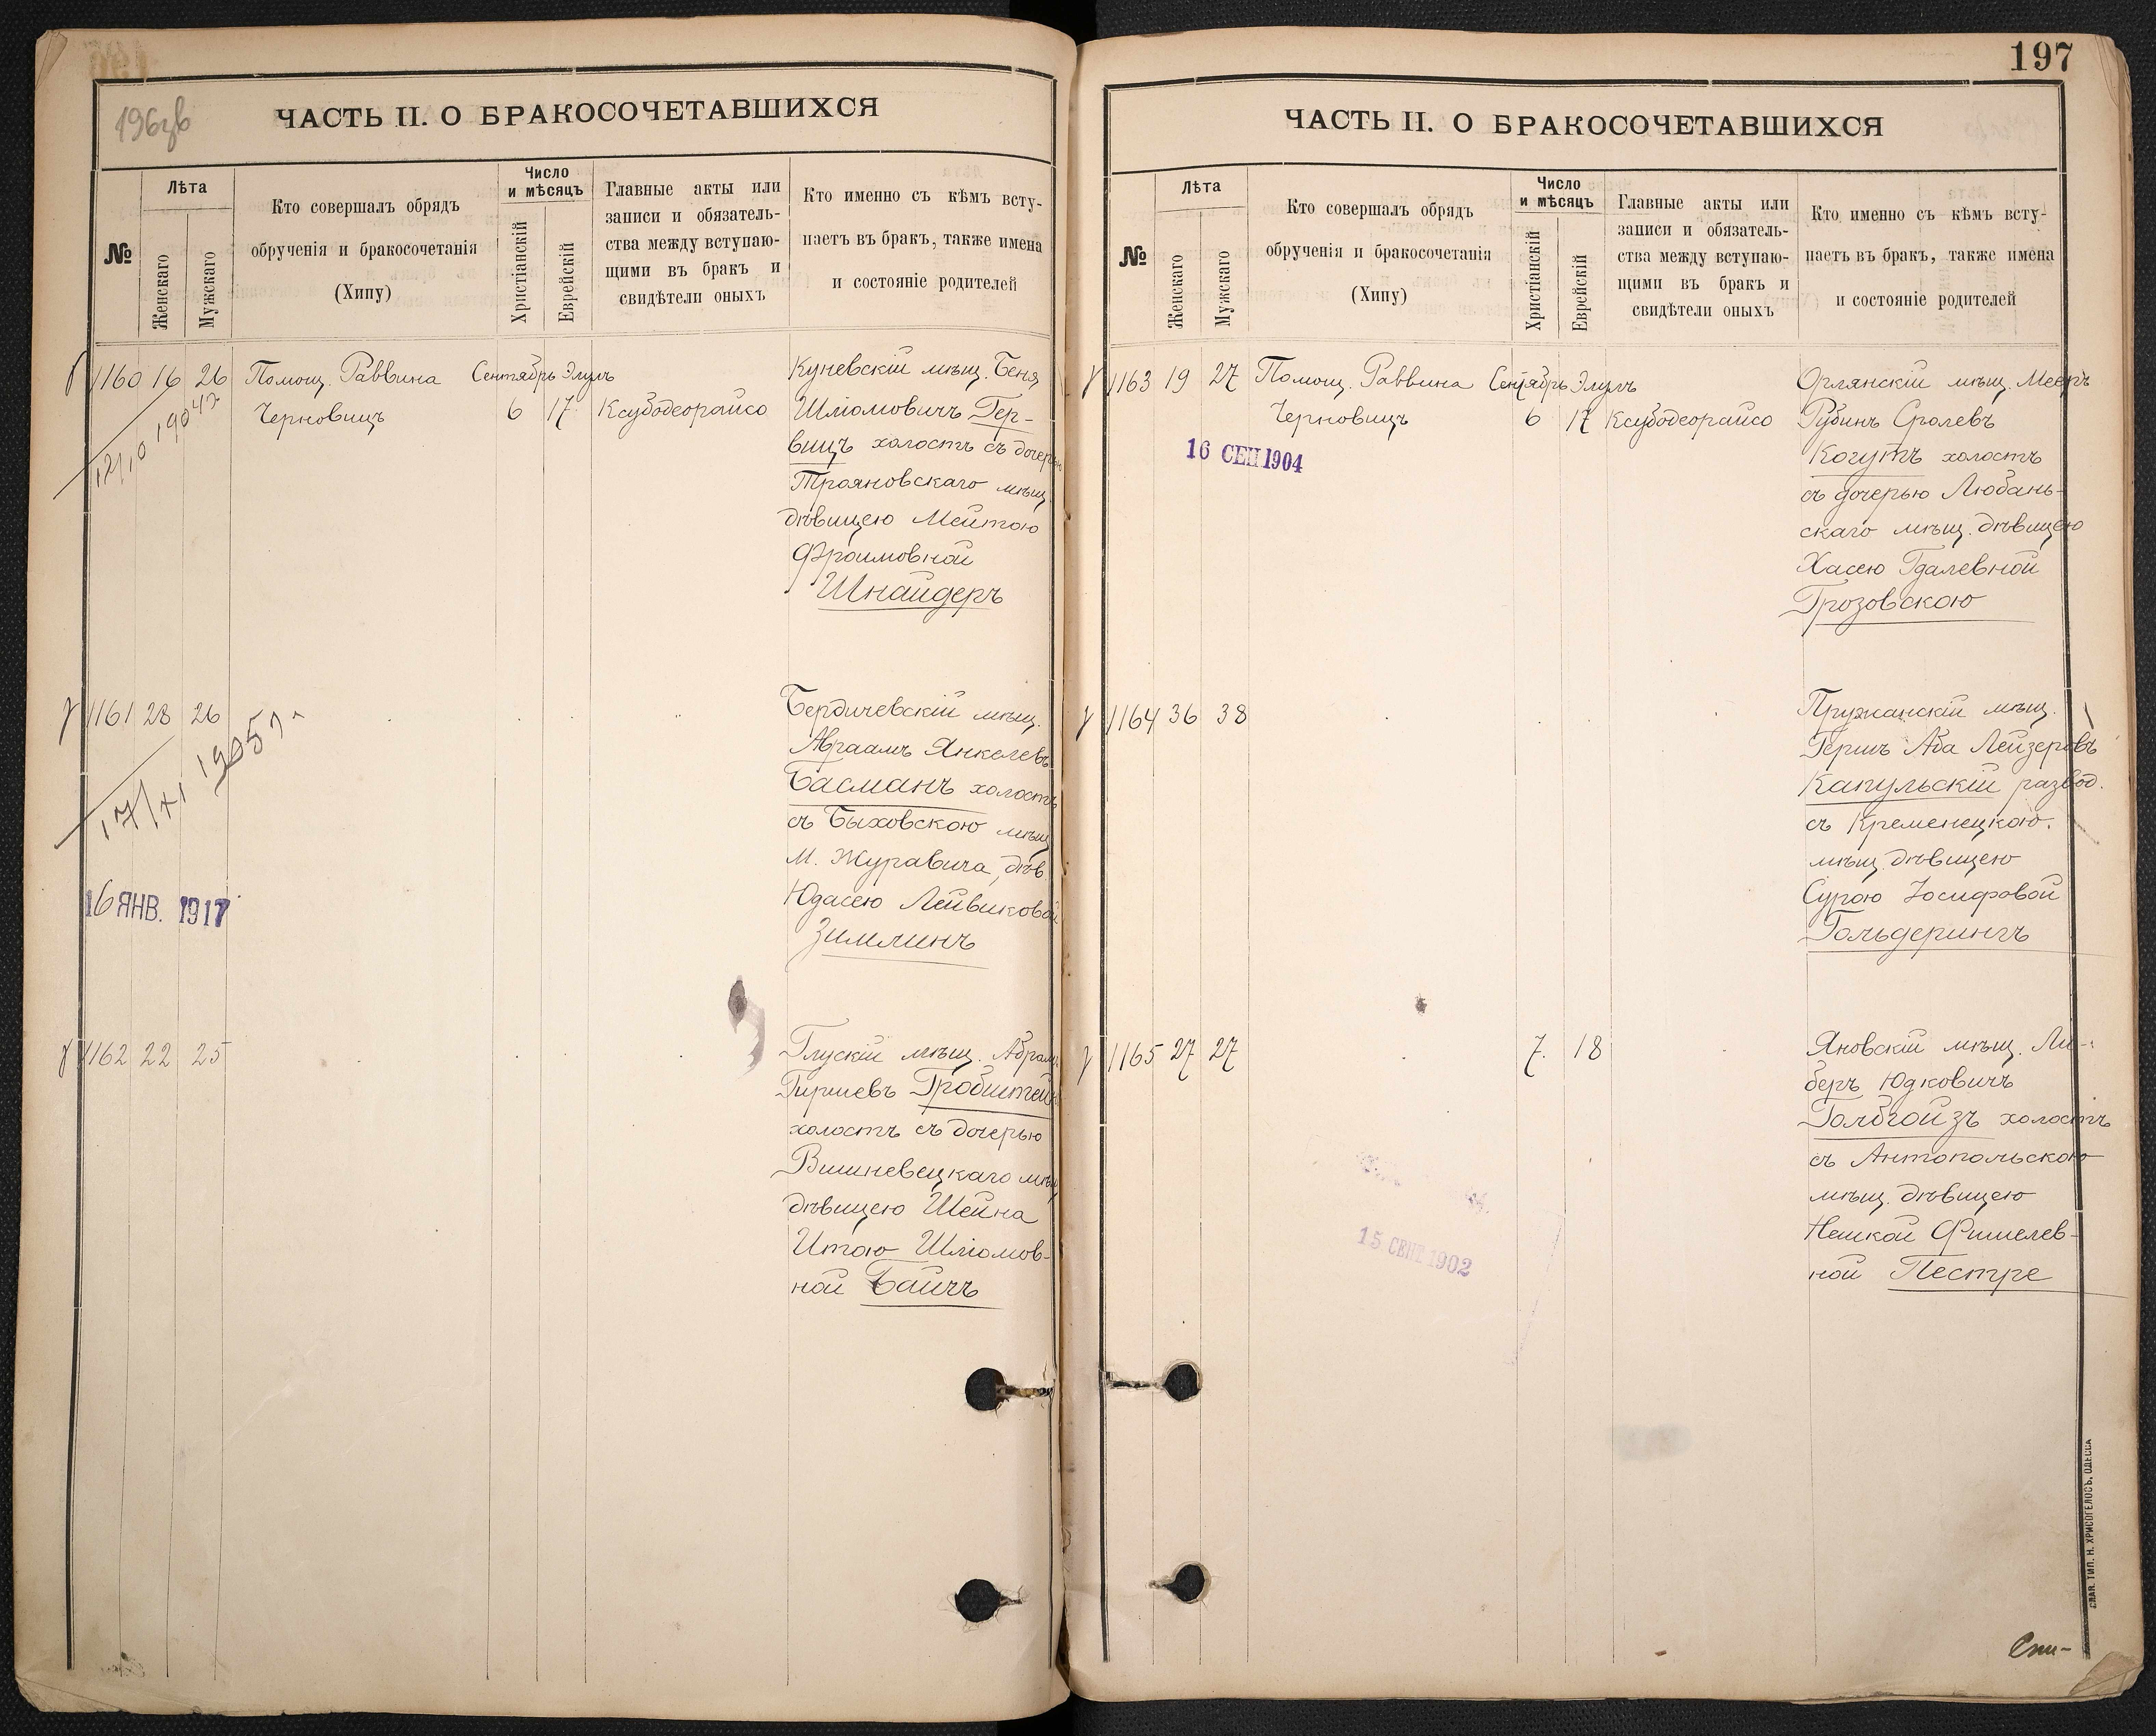 196зв
ЧАСТЬ II. О БРАКОСОЧЕТАВШИХСЯ
№
Лѣта
Женскаго
Мужскаго
Кто совершалъ обрядъ
обрученія и бракосочетанія
(Хипу)
Число
и мѣсяцъ
Христіанскій
Еврейскій
Главные акты или
записи и обязатель-
ства между вступаю-
щими въ бракъ и
свидѣтели оныхъ
Кто именно съ кѣмъ всту-
паетъ въ бракъ, также имена
и состояніе родителей
1160 16 26 Помощ. Раввина Сентябрь Элулъ
Черновицъ 6 17 Ксубодеорайсо
Куневскій мѣщ. Беня
Шліомовичъ Гер-
вицъ холостъ съ дочерью
Трояновскаго мѣщ.
дѣвицею Мейтою
Фроимовной
Шнайдеръ
1161 28 26
17/XI 1905 г
16 ЯНВ. 1917
Бердичевскій мѣщ.
Авраамъ Янкелевъ
Басманъ холостъ
съ Быховскою мѣщ
м. Журавича, дѣв.
Юдасею Лейвиковой
Зимлинъ
1162 22 25
Глускій мѣщ. Абрамъ
Гиршевъ Гробштейнъ
холостъ съ дочерью
Вишневецкаго мѣщ
дѣвицею Шейна
Итою Шліомов-
ной Байчъ
197
ЧАСТЬ II. О БРАКОСОЧЕТАВШИХСЯ
№
Лѣта
Женскаго
Мужскаго
Кто совершалъ обрядъ
обрученія и бракосочетанія
(Хипу)
Число
и мѣсяцъ
Христіанскій
Еврейскій
Главные акты или
записи и обязатель-
ства между вступаю-
щими въ бракъ и
свидѣтели оныхъ
Кто именно съ кѣмъ всту-
паетъ въ бракъ, также имена
и состояніе родителей
1163 19 27 Помощ. Раввина Сентябрь Элулъ
Черновицъ 6 17 Ксубодеорайсо
16 СЕН 1904
Орлянскій мѣщ. Мееръ
Рубинъ Сролевъ
Когутъ холостъ
съ дочерью Любань-
скаго мѣщ. дѣвицею
Хасею Гдалевной
Грозовскою
1164 36 38
Пружанскій мѣщ.
Гершъ Аба Лейзеровъ
Капульскій развод.
съ Кременецкою.
мѣщ. дѣвицею
Сурою Іосифовой
Гольдерингъ
1165 27 27 7. 18
15 СЕНТ 1902
Яновскій мѣщ. Ли-
беръ Юдковичъ
Голбгойзъ холостъ
съ Антопольскою
мѣщ. дѣвицею
Нешкой Фишелев-
ной Пестре
СЛАВ. ТИП. Н. ХРИСОГЕЛОСЪ, ОДЕССА